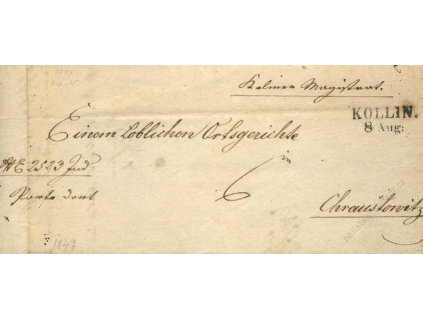 Koliner Magistrat.
KOLLIN.
8 Aug:
Einem Loblichen Ortsgerichte
in
NE 2523 Jud
Porto dort
6
Chraustowitz
1847